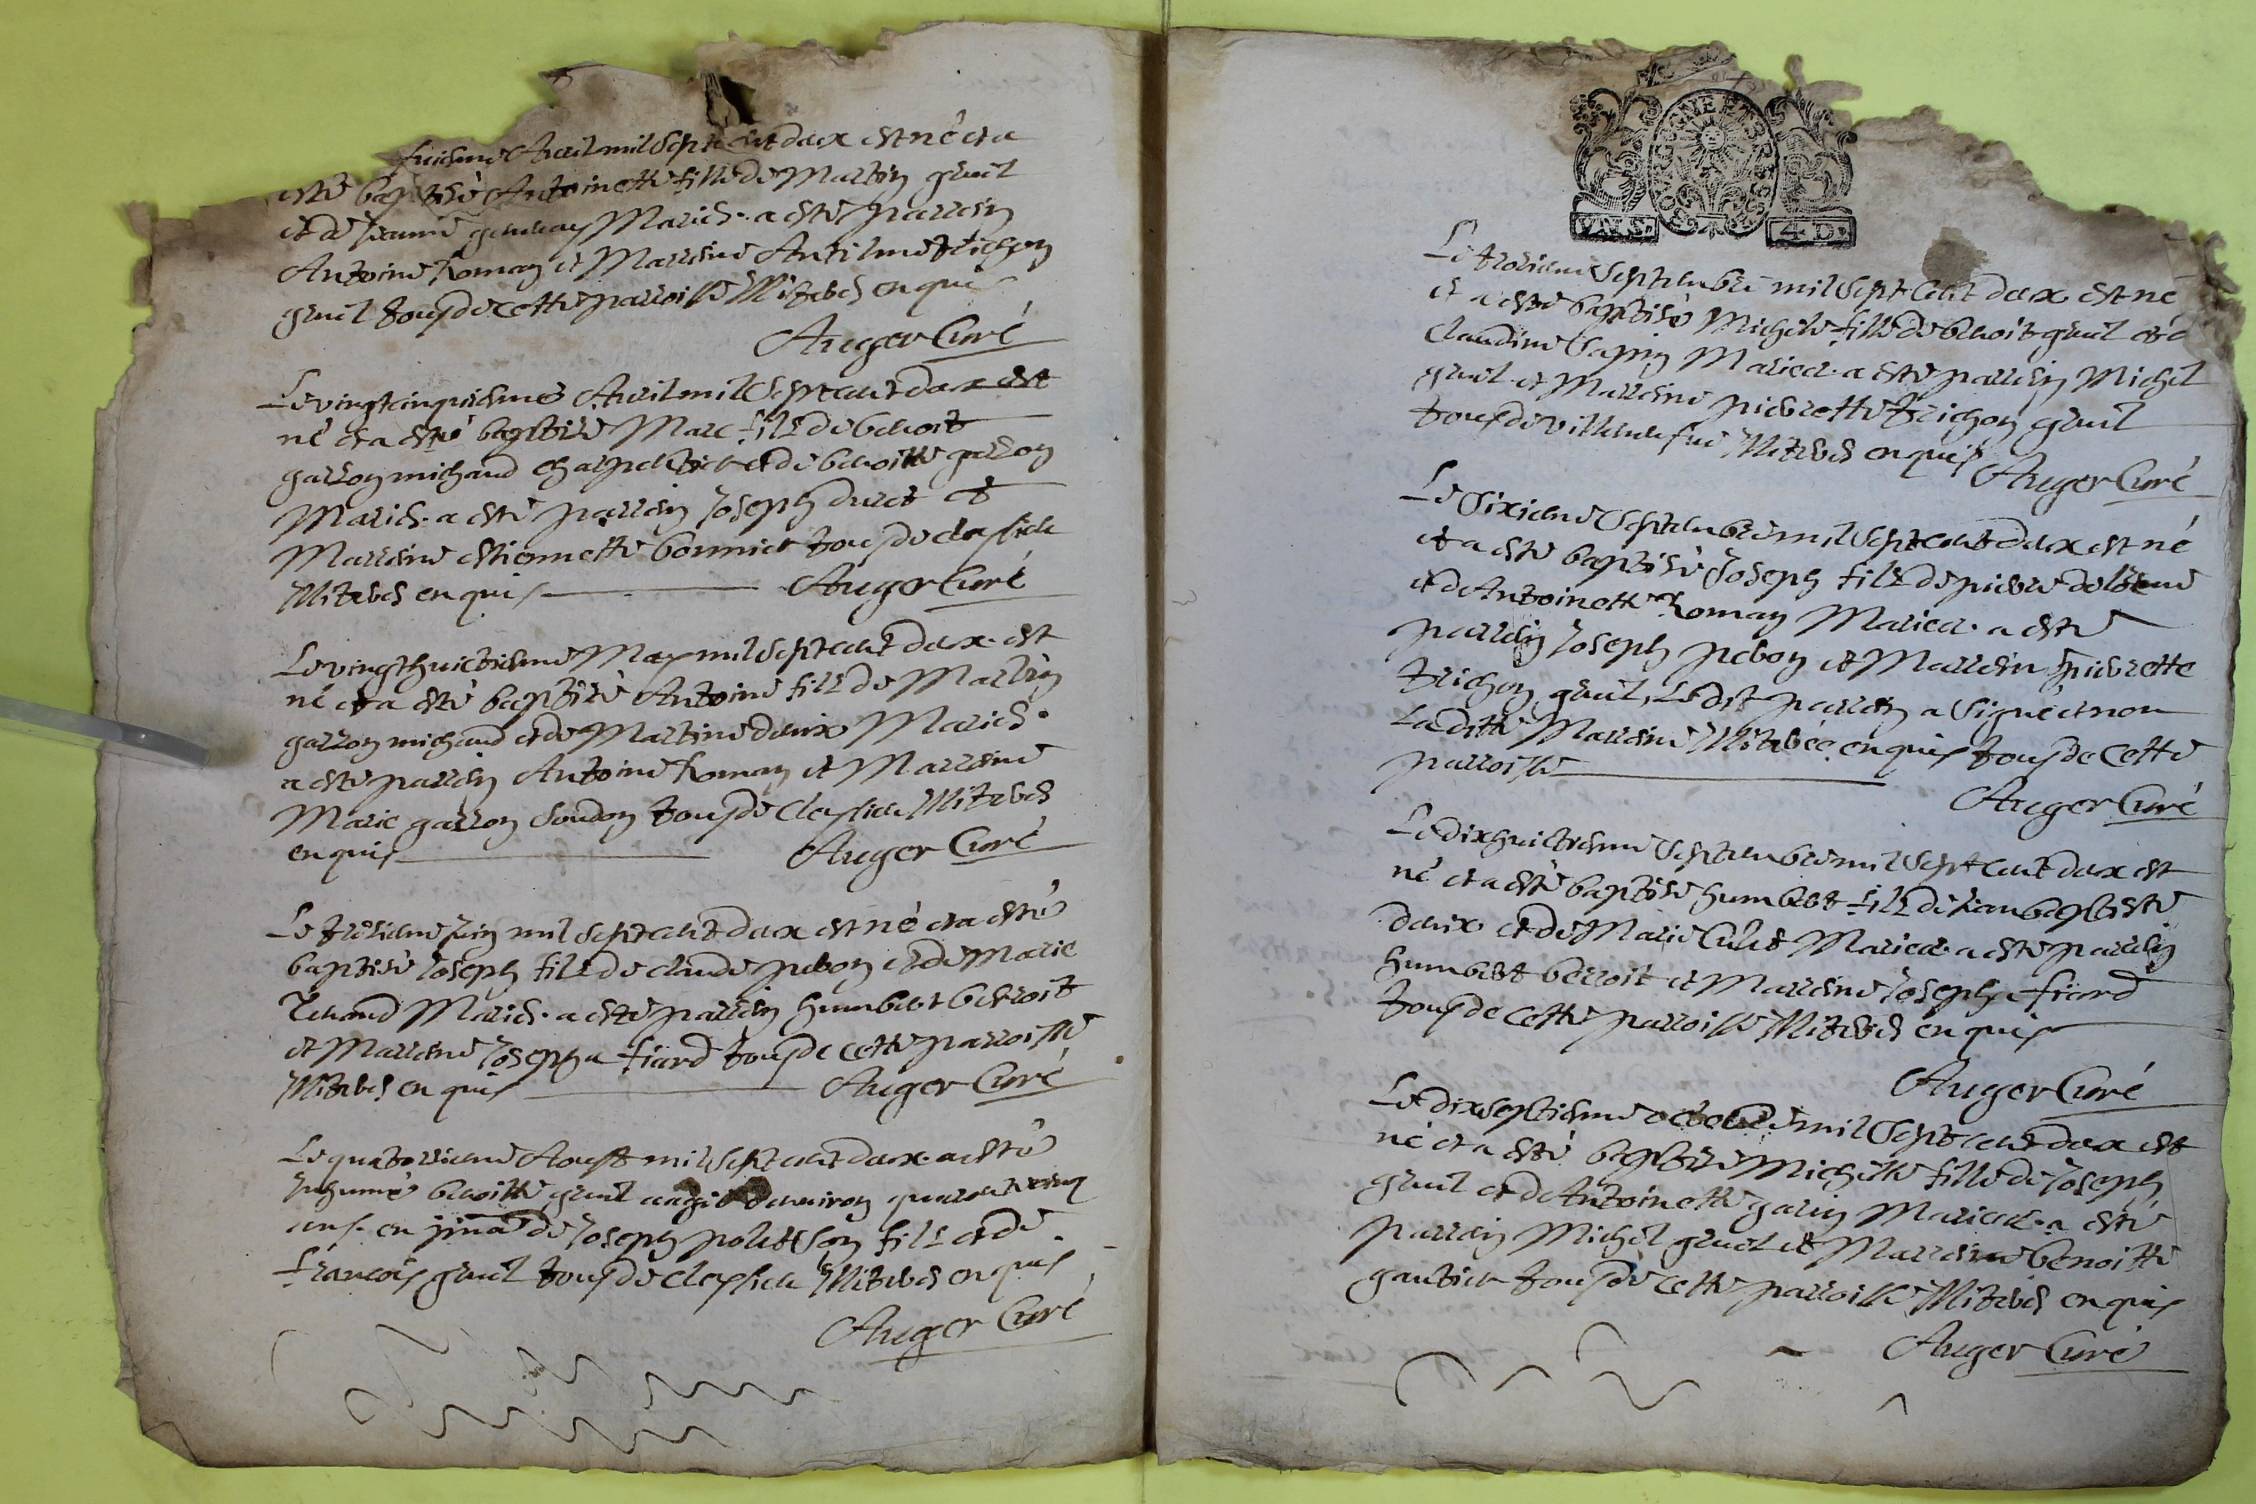 Avril mil sept cent deux est né et a
esté baptisé Antoinette fille de Martin gruil
et de Jeanne Mariés. a esté parrein
Antoine Roman et Marreine Antilme trichon
gruil tous de cette parroisse Illiterés enquis
Auger Curé
Le vingtcinquiesme Avril mil sept cent deux est
né et a esté baptisé Marc fils de benoit
garron michaud charpentier et de benoitte garron
Mariés. a esté parrein Joseph duret et
Marreine estiennette bonnier tous de cleyssieu
Illiterés enquis Auger Curé
Le vingthuictiesme May mil sept cent deux. est
né et a esté baptisé Antoine fils de Martin
garron michaud et de Martine Mariés.
a esté parrein Antoine Roman et Marreine
Marie garron soudon tous de Cleyssieu Illiterés
enquis Auger Curé
Le troisieme Juin mil sept cent deux est né et a esté
baptisé Joseph fils de claude pebon et de Marie
Mariés. a esté parrein humbert berroit
et Marreine Josephe fiard tous de cette parroisse
Illiterés enquis Auger Curé
Le quatorzieme Aoust mil sept cent deux. a esté
Inhumé benoitte gruil aagée d'environ quarantecinq
ans. en pnce de Joseph polet son fils et de
francois gruil tous de cleyssieu Illiterés enquis
Auger Curé
VN.S. 4.D.
Le troisieme Septembre mil sept cent deux est né
et a esté baptisé Michele fille de benoit gruil et de
Claudine Sappin Mariez. a esté parrein Michel
gruil et Marreine pierrette trichon gruil
tous de villeneufve Illiterés enquis
Auger Curé
Le Sixieme Septembre mil sept cent deux est né
et a esté baptisé Joseph fils de pierre
et d'Antoinette Roman Mariez. a esté
parrein Joseph pebon et Marreine pierrette
trichon gruil, Ledit parrein a signé et non
Ladite Marreine Illiterée enquis tous de Cette
parroisse
Auger Curé
Le dixhuictiesme Septembre mil sept cent deux est
né et a esté baptisé humbert fils de Jean baptiste
et de Marie Culet Mariez. a esté parrein
humbert berroit et Marreine Josephe fiard
tous de Cette parroisse Illiterés enquis
Auger Curé
Le dixseptiesme octobre mil sept cent deux est
né et a esté baptisé Michelle fille de Joseph
gruil et d'Antoinette garin Mariez. a esté
parrein Michel gruil et Marreine benoitte
gautier tous de cette parroisse Illiterés enquis
Auger Curé